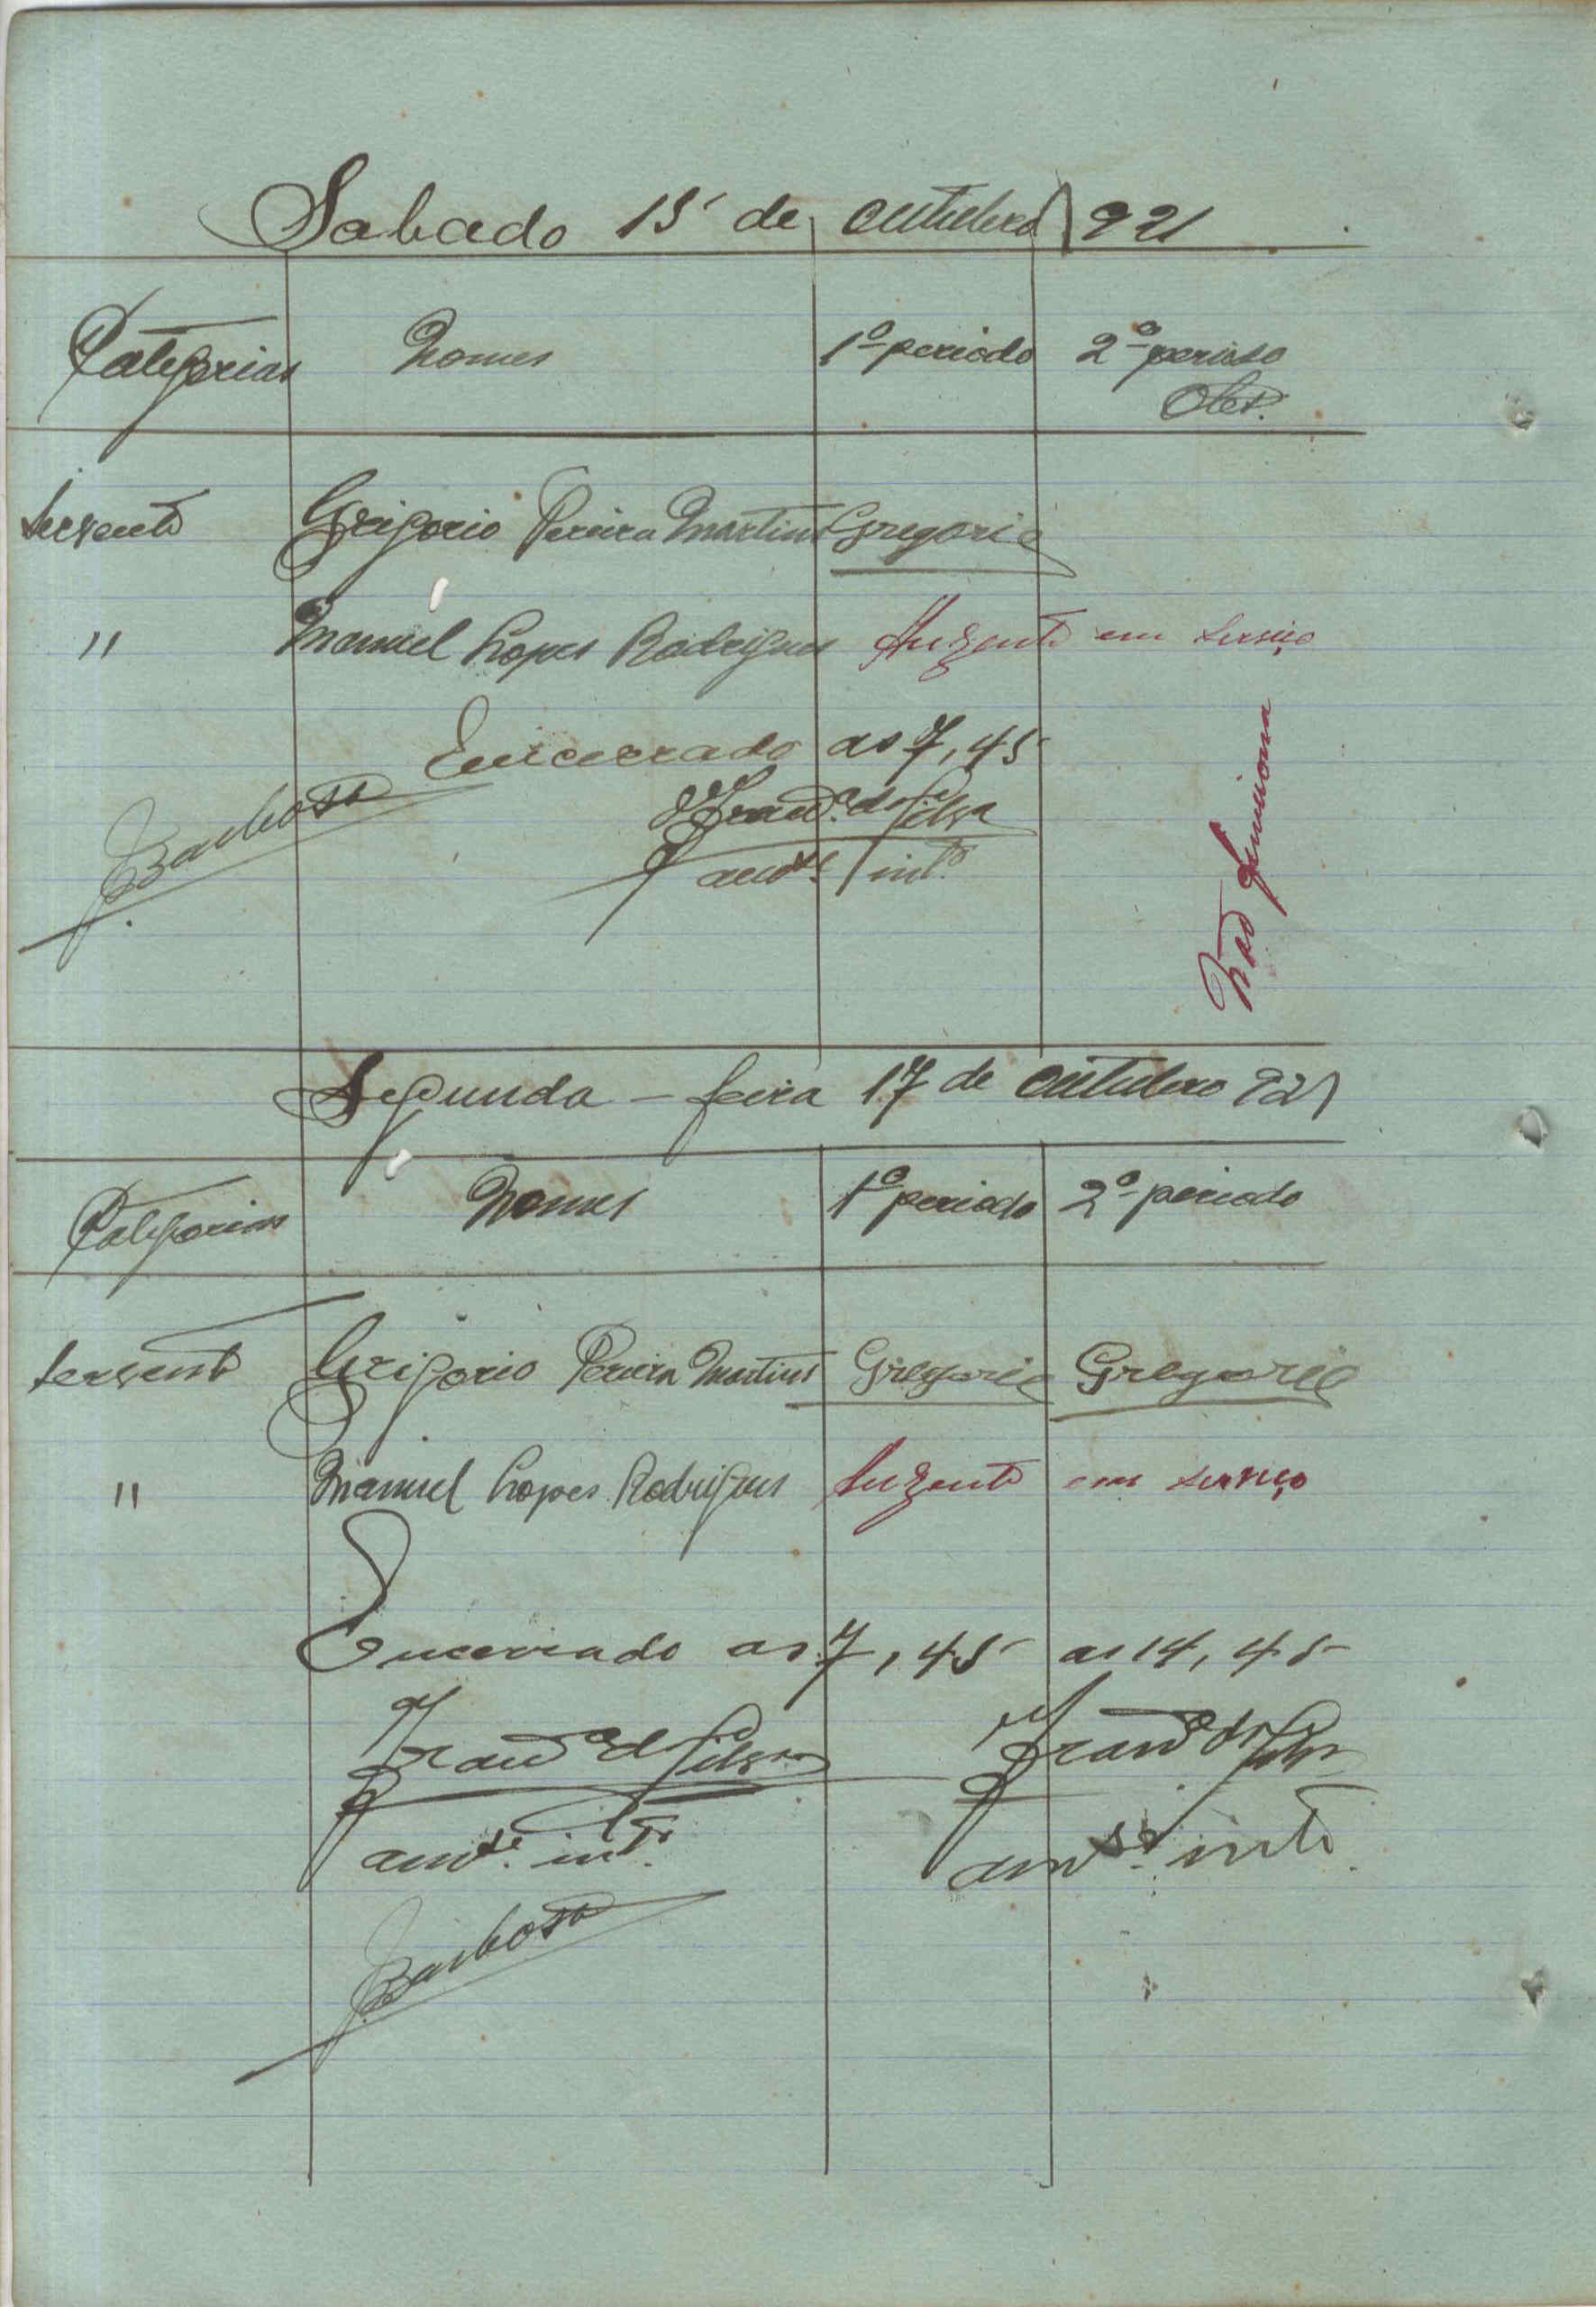 Sabado 15 de outubro 921
Categorias Nomes 1º periodo 2º periodo
Obs.
Servente Grigorio Pereira Martins Gregorio
" Manuel Lopes Rodrigues Auzente em serviço
Encerrado as 7,45
Franc.º da Silva
Barbosa
int.º
Não funciona
Segunda - feira 17 de outubro 921
Categorias Nomes 1º periodo 2º periodo
Servente Grigorio Pereira Martins Gregorio Gregorio
" Manuel Lopes Rodrigues Auzente em serviço
Encerrado as 7,45 as 14,45
Franc.º da Silva Franc.º da Silva
int.º int.º
Barbosa